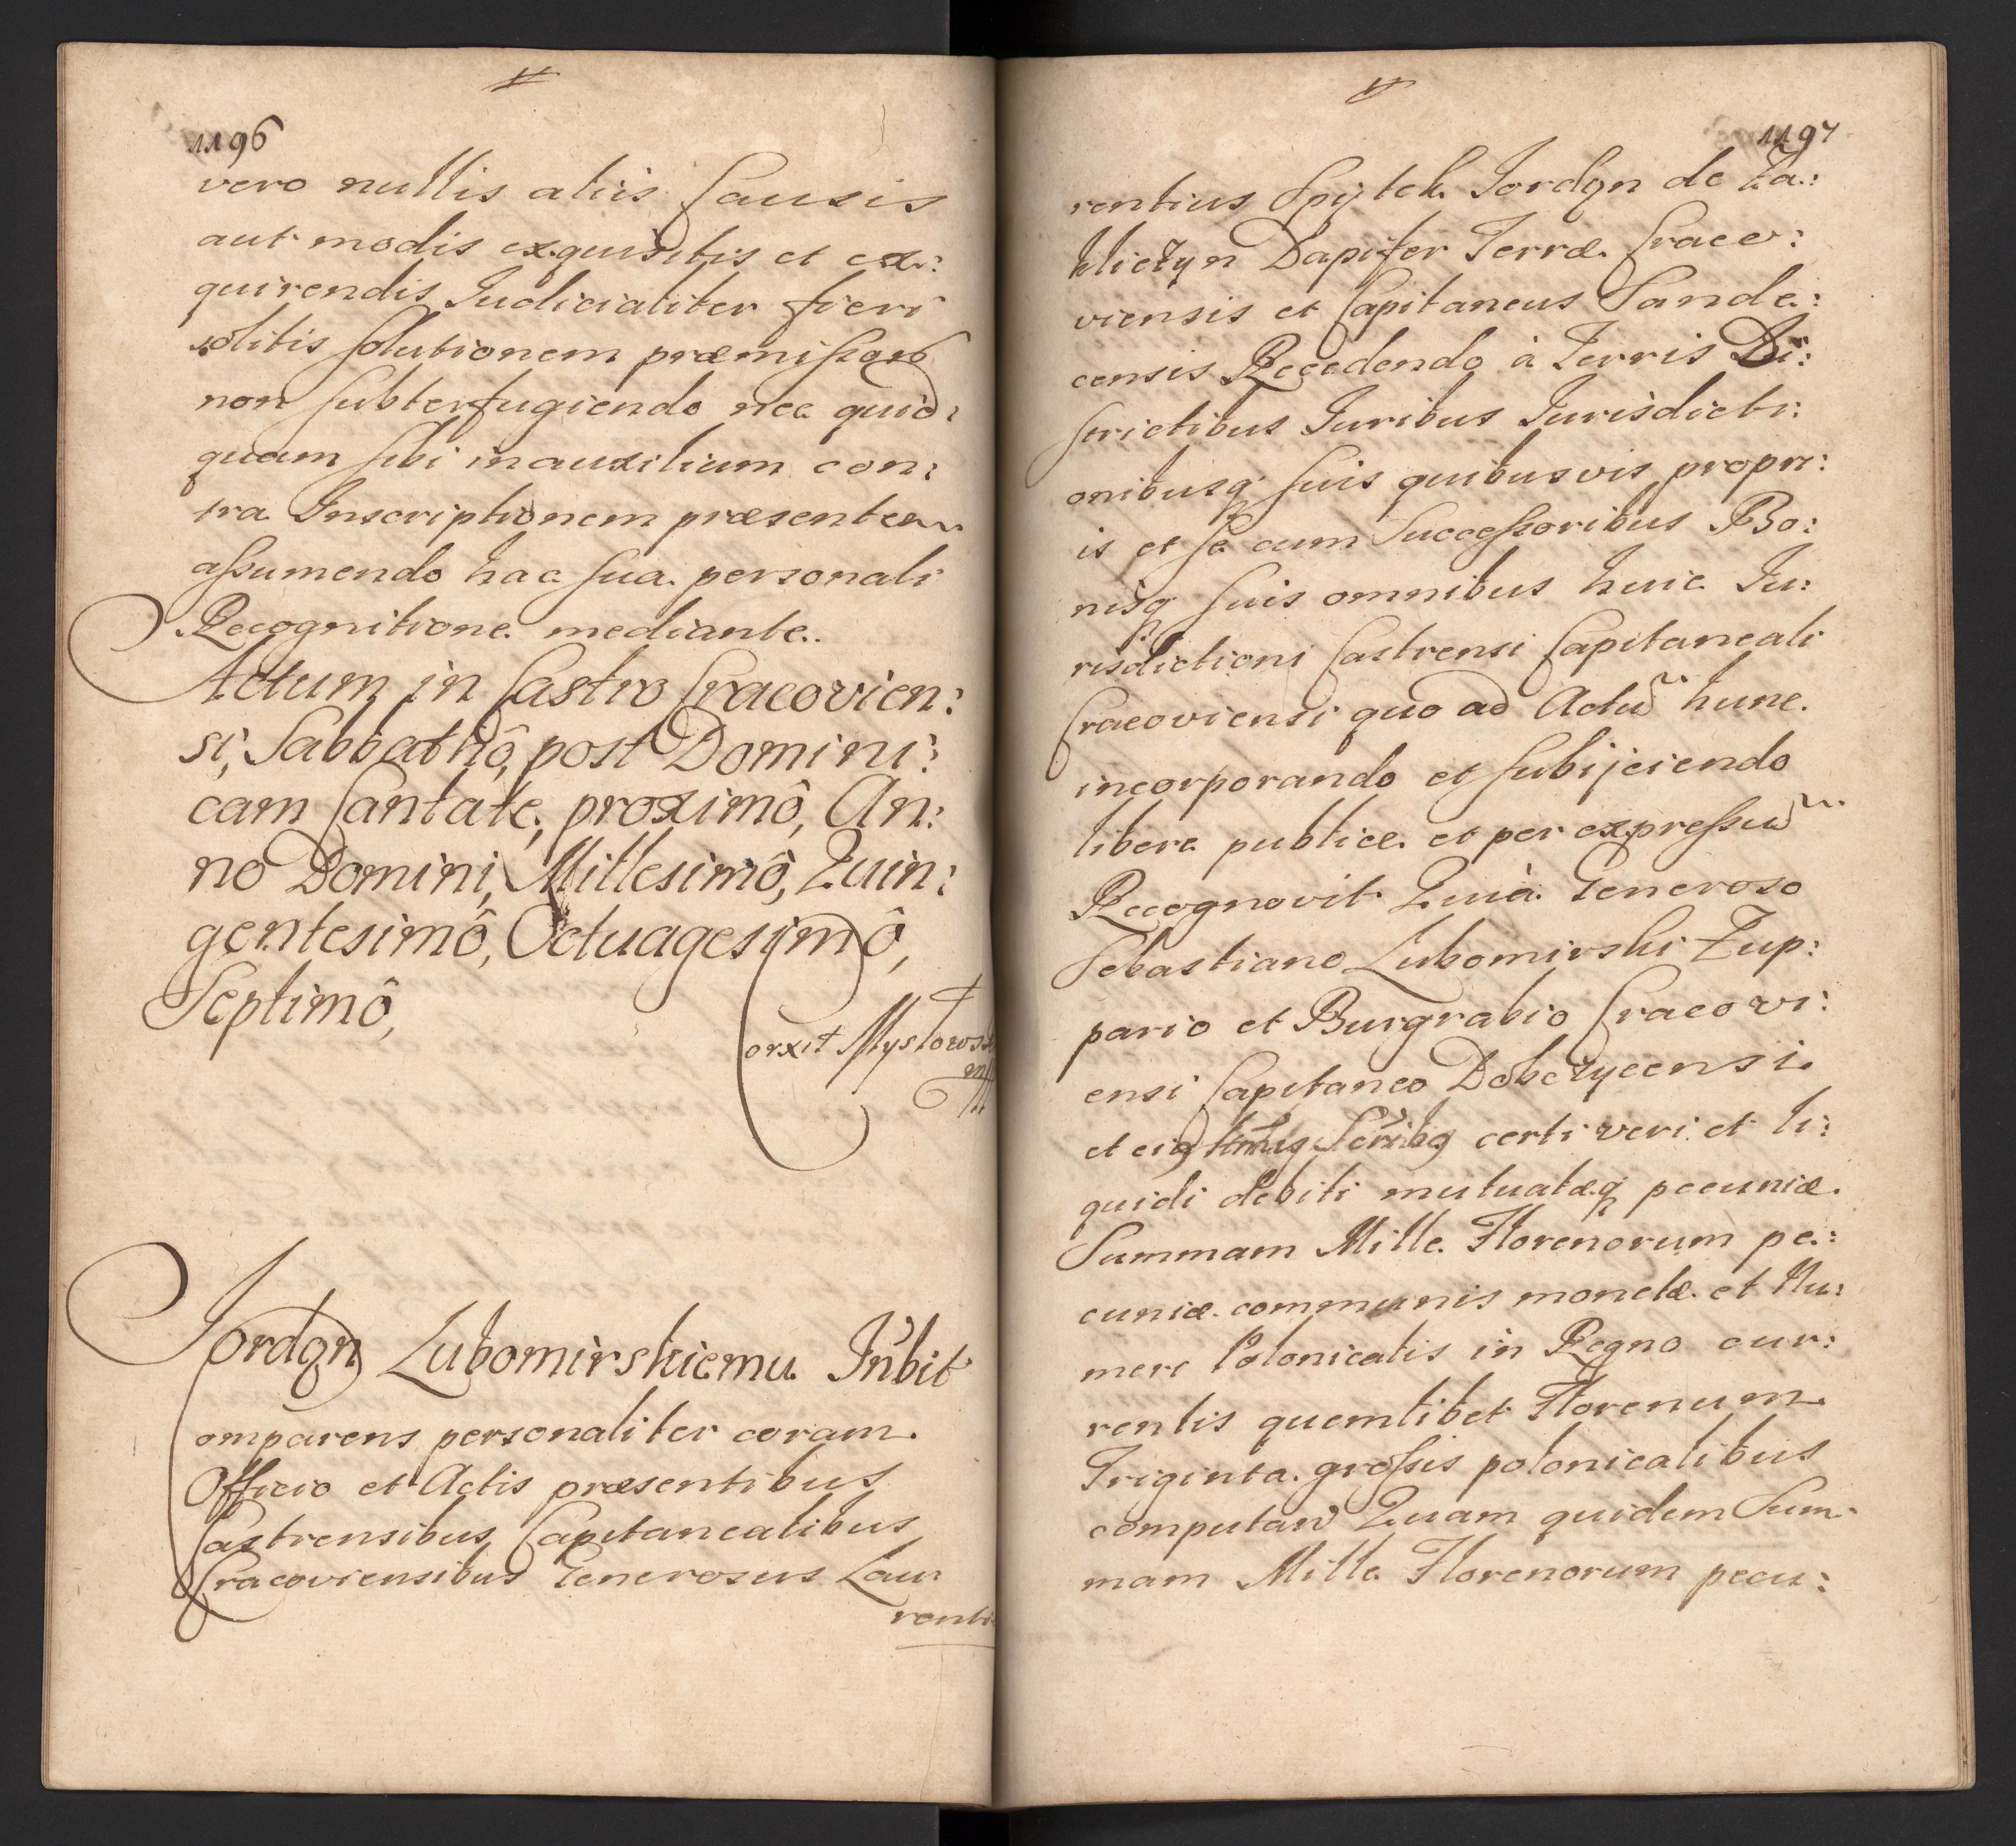 1196
vero nullis aliis Causis
aut modis exquisitis et ex:
quirendis Iudicialiter fieri
solitis solutionem præmissor
non subterfugiendo nec quid:
quam sibi in auxilium con:
tra Inscriptionem præsentem
assumendo hac sua personali
Recognitione mediante.
Actum in Castro Cracovien:
si, Sabbathô, post Domini:
cam Cantate, proximô, An:
no Domini, Millesimô, Quin:
gentesimô, Octuagesimô,
Septimô,
Jordan Lubomirskiemu Inbit
Comparens personaliter coram
Officio et Actis præsentibus
Castrensibus Capitanealibus
Cracoviensibus Generosus Lau
renti
1197
rentius Spytek Jordan de Za:
kliczyn Dapifer Terræ Craco:
viensis et Capitaneus Sande:
censis Recedendo à Terris Di:
strictibus Iuribus Iurisdicti:
onibusq suis quibusvis propri:
is et se cum Successoribus Bo:
nisq suis omnibus huic Iu:
risdictioni Castrensi Capitaneali
Cracoviensi quo ad Actu hunc
incorporando et subijciendo
libere publice et per expressu
Recognovit Quià Generoso
Sebastiano Lubomirski Zup:
pario et Burgrabio Cracovi:
ensi Capitaneo Dobczycensi
et eiq certi veri et li:
quidi debiti mutuatæq pecuniæ
Summam Mille Florenorum pe:
cuniæ communis monetæ et Nu:
meri Polonicalis in Regno cur:
rentis quemlibet Florenum
Triginta grossis polonicalibus
computan Quam quidem Sum
mam Mille Florenorum pecu: